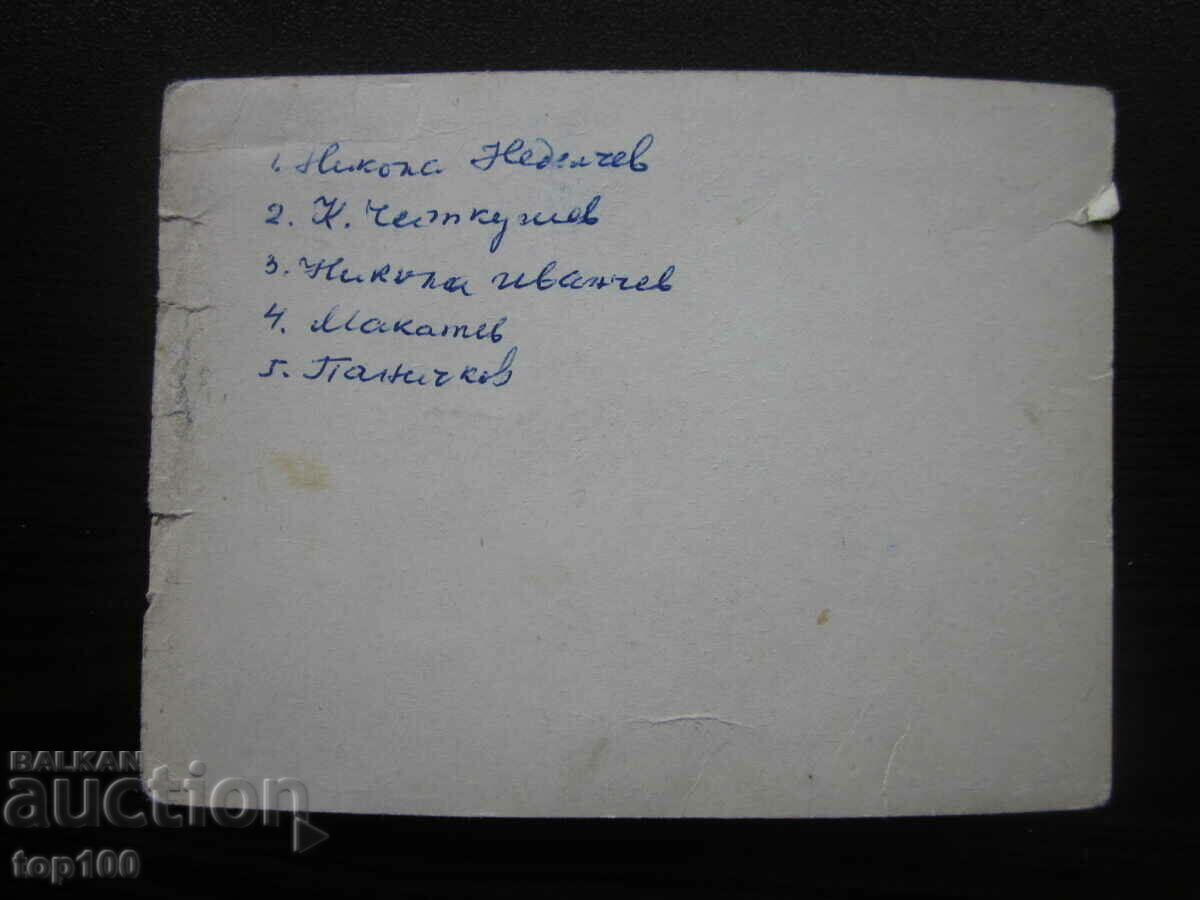 1. Никола Неделчев
2. К.
3. Никола Иванчев
4.
5. Паничков
BALKAN
auction
top100